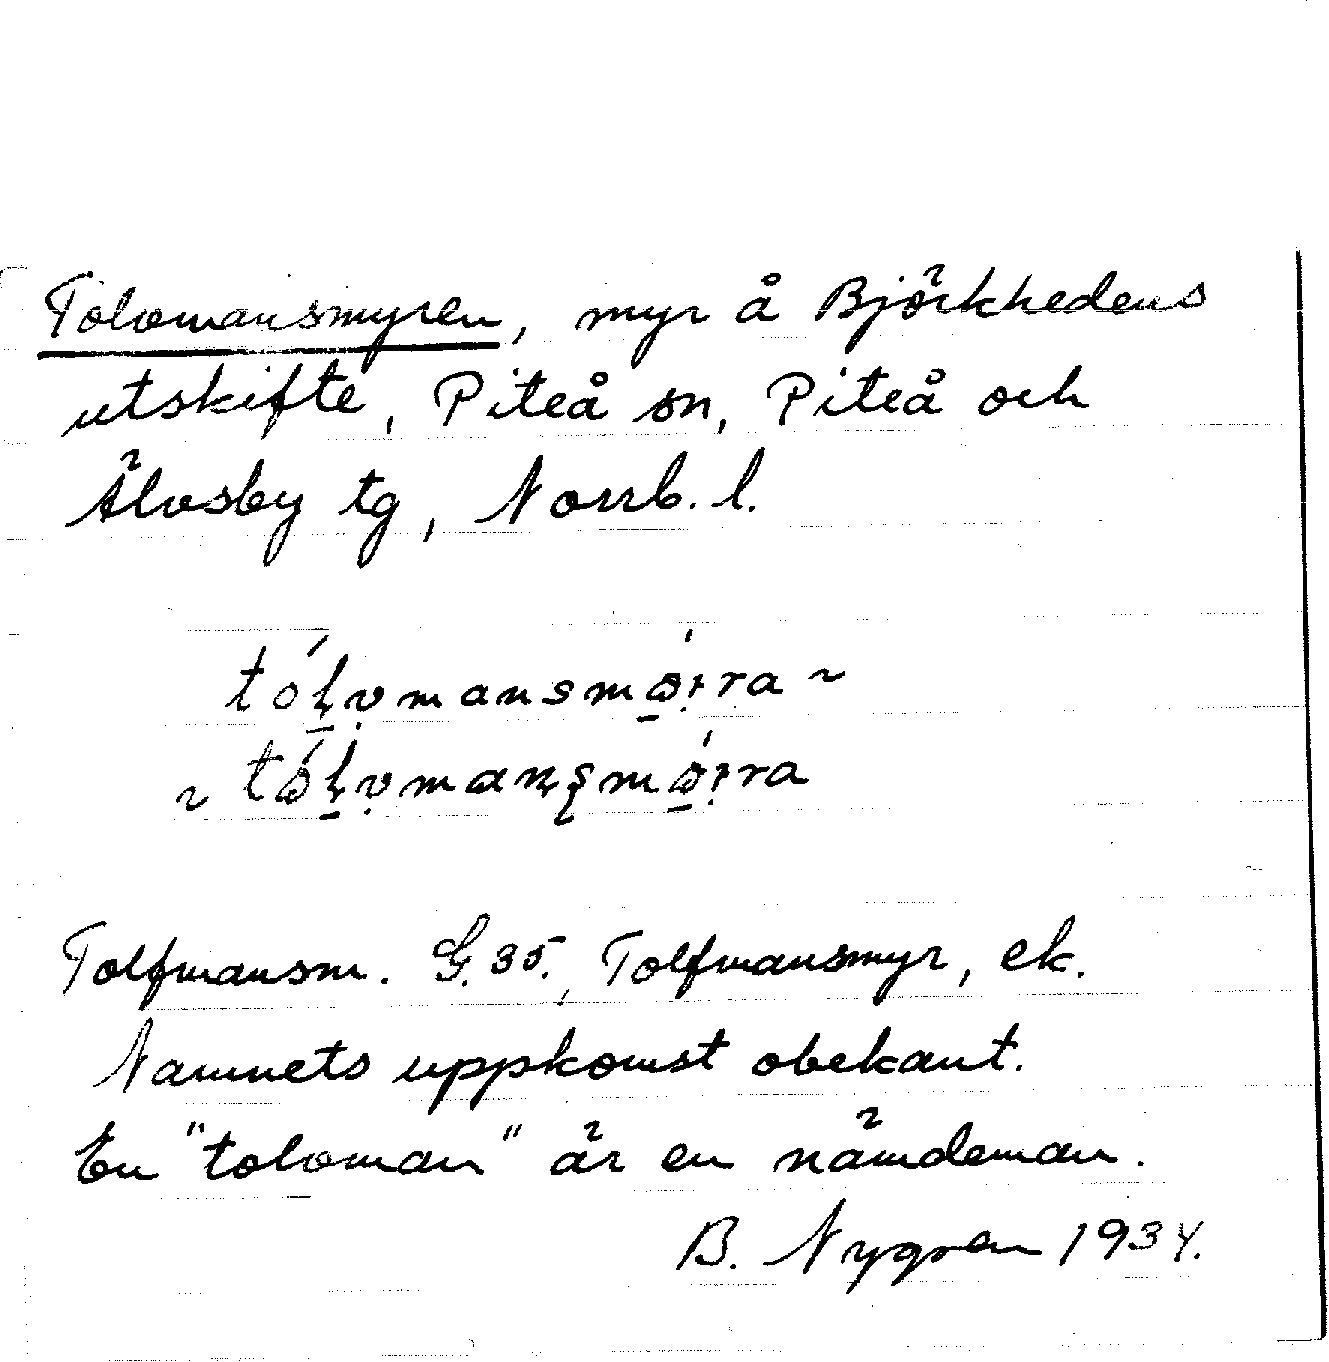 Tolvmansmyren, myr å Björkhedens
utskifte, Piteå sn, Piteå och
Älvsby tg, Norrb. l.
tóḷv̥mansmǿ̱i̯ra ~
~ tǿḷv̥maṇşmǿ̱i̯ra
Tolfmansm. G. 35., Tolfmansmyr, ek.
Namnets uppkomst obekant.
En "tolvman" är en nämdeman.
B. Nygren 1934.